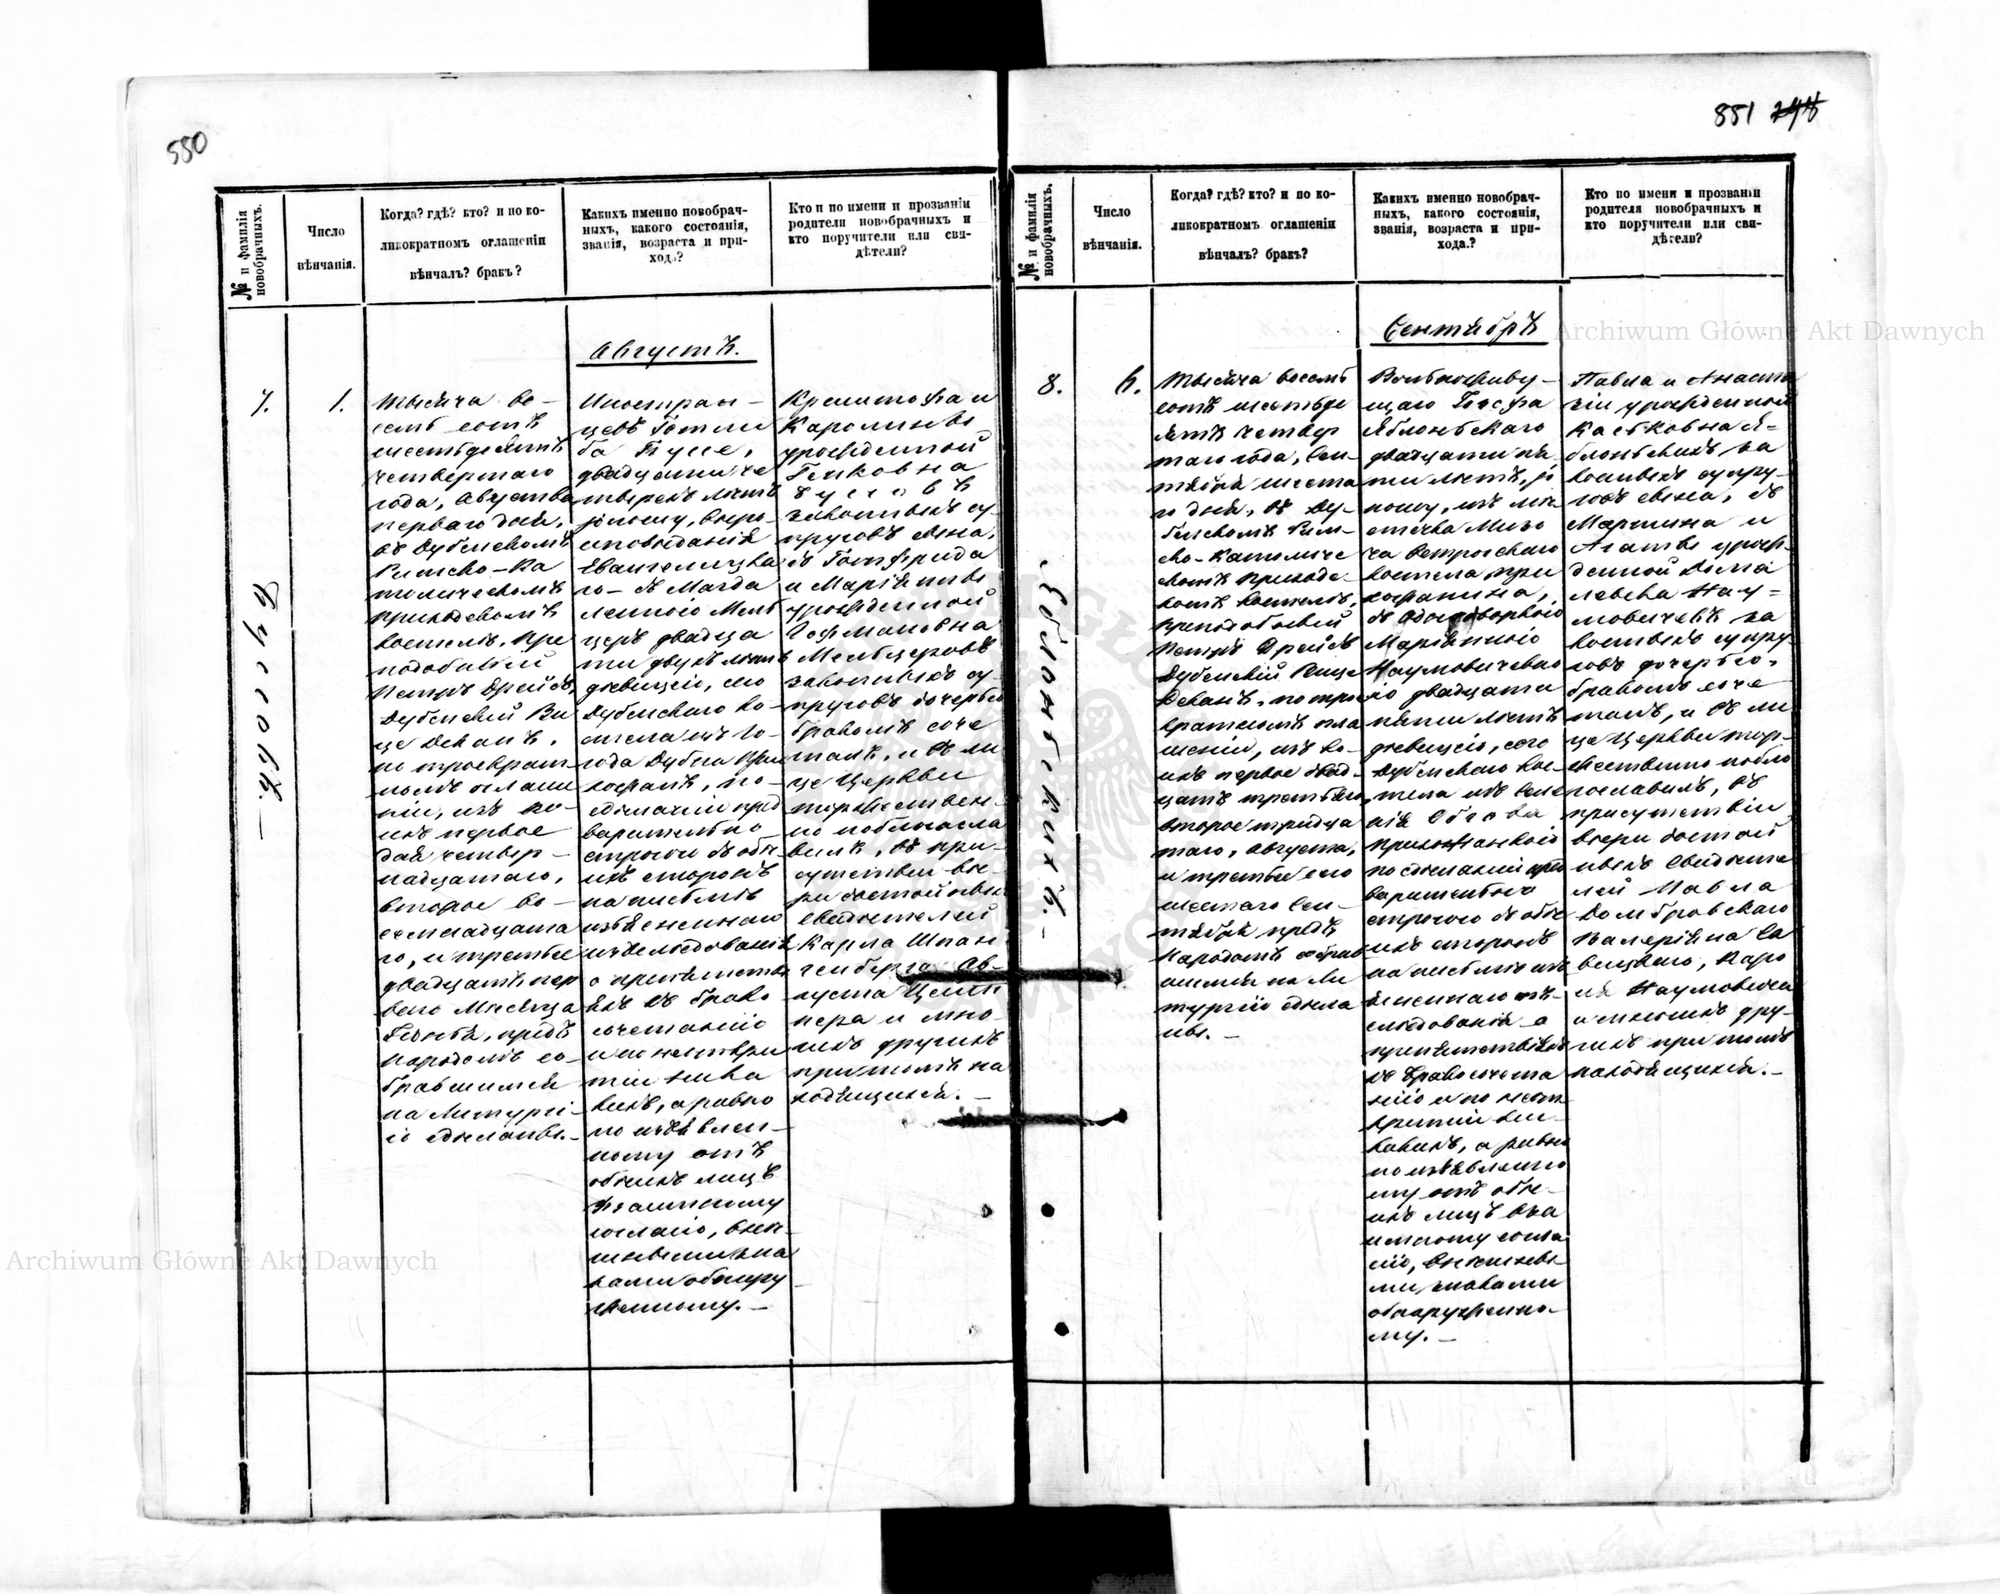 550
№ и фамилія
новобрачныхъ.
Число
вѣнчанія.
Когда? гдѣ? кто? и по ко-
ликократномъ оглашеніи
вѣнчалъ? бракъ?
Какихъ именно новобрач-
ныхъ, какого состоянія,
званія, возраста и при-
хода?
Кто и по имени и прозваніи
родители новобрачныхъ и
кто поручители или сви-
дѣтели?
Августъ.
7.
1.
Тысяча во-
семь сотъ
шестьдесятъ
четвертаго
года, Августа
перваго дня,
въ Дубенскомъ
Римско-Ка
толическомъ
приходскомъ
костелѣ, пре
подобный
Петръ Дрейсъ,
Дубенскій Ви
це Деканъ,
по троекрат
номъ оглаше
ніи, изъ ко-
ихъ первое
дня четыр-
надцатаго,
второе во-
семнадцата
го, и третье
двадцать пер
ваго Мѣсяца
предъ
народомъ со-
бравшимся
на Литургі-
ю сдѣланы.-
Иностран-
цевъ Готли
ба Буссе,
двадцати че
тырехъ лѣтъ
юношу, вѣро-
исповѣданія
Евангелицка
го- съ Магда
леною Мель
церъ двадца
ти двухъ лѣтъ
дѣвицею, сего
Дубенскаго ко-
стела изъ го-
рода Дубна при
хожанъ, по
сдѣланіи пред
варительно
строгого съ обѣ-
ихъ сторонъ
на письмѣ
изъясненнаго
изслѣдованія
о препятств
іяхъ къ брако
сочетанію
и по неоткры
тіи ника
кихъ, а равно
по изъявлен-
ному отъ
обѣихъ лицъ
взаимному
согласію, внѣ
шними зна
ками обнару
женному.-
Кристофа и
Каролины
урожденной
Генковна
Буссовъ
законныхъ су-
пруговъ сына,
съ Готфрида
и Маріянны
урожденной
Гофмановна
Мельцеровъ
законныхъ су-
пруговъ дочерью
бракомъ соче
талъ, и въ ли
це Церкви
торжествен-
но поблагосла
вилъ, въ при-
сутствіи вѣ-
ры достойныхъ
свидѣтелей
Карла Шпан
генберга, Ав-
густа
и мно-
гихъ другихъ
при томъ на
ходящихся.-
Буссовъ.-
551 298
№ и фамилія
новобрачныхъ.
Число
вѣнчанія.
Когда? гдѣ? кто? и по ко-
ликократномъ оглашеніи
вѣнчалъ? бракъ?
Какихъ именно новобрач-
ныхъ, какого состоянія,
званія, возраста и при-
хода.?
Кто по имени и прозваніи
родителя новобрачныхъ и
кто поручители или сви-
дѣтели?
Сентябрь
8.
6.
Тысяча восемь
сотъ шестьде
сятъ четвер
таго года, Сен-
тября шеста
го дня, въ Ду-
бенскомъ Рим-
ско-Католиче
скомъ приход-
скомъ костелѣ,
преподобный
Петръ Дрейсъ
Дубенскій Вице
Деканъ, по трое
кратномъ огла
шеніи, изъ ко-
ихъ первое двад-
цать третьяго,
второе тридца
таго, Августа,
и третье сего
шестаго Сен-
тября предъ
народомъ собрав
шимся на Ли
тургію сдѣла
ны.-
Вольноживу-
щаго Іосфа
Яблонскаго
двадцати пя
ти лѣтъ, ю
ношу, изъ мѣ
стечка Мизо
ча Острожскаго
костела при
хожанина,
съ Однодворкою
Маріянною
Наумовичевно
ю двадцати
пяти лѣтъ
дѣвицею, сего
Дубенскаго кос-
тела изъ селе
нія
прихожанкою
по сдѣланіи пред
варительно
строгого съ обѣ
ихъ сторонъ
на письмѣ изъ
ясненнаго из-
слѣдованія о
препятствіяхъ
къ бракосочета
нію и по неот-
крытіи ни-
какихъ, а равно
по изъявленно
му отъ обѣ-
ихъ лицъ вза
имному согла
сію, внѣшны
ми знаками
обнаруженно-
му.-
Павла и Анаста
зіи урожденной
Каськовна Я-
блонскихъ за
конныхъ супру-
говъ сына, съ
Мартина и
Агаты урож-
денной
Нау-
мовичевъ за
конныхъ супру-
говъ дочерью,
бракомъ соче
талъ, и въ ли
це Церкви тор-
жественно побла
гословилъ, въ
присутствіи
вѣры достой
ныхъ свидѣте
лей Павла
Домбровскаго
Валеріяна Са
вицкаго, Каро
ля Наумовича
и многихъ дру-
гихъ при томъ
находящихся.-
Яблонскихъ.-
Archiwum Główne Akt Dawnych
Archiwum Główne Akt Dawnych